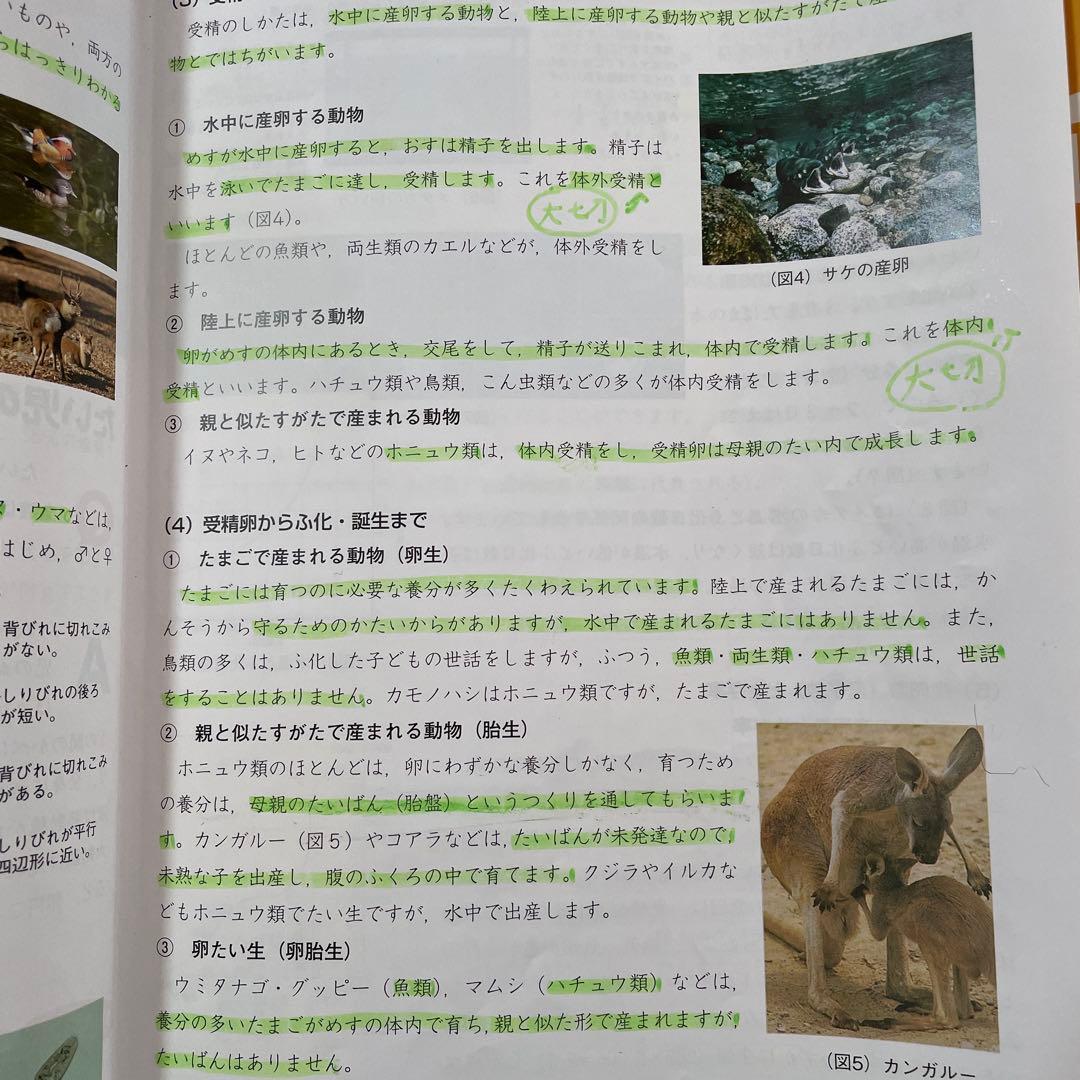 いものや，両方の
らはっきりわかる
ス・ウマなどは，
はじめ，♂と♀
背びれに切れこみ
がない。
しりびれの後ろ
が短い。
背びれに切れこみ
がある。
しりびれが平行
四辺形に近い。
受精のしかたは，水中に産卵する動物と，陸上に産卵する動物や親と似たすがたで産
物とではちがいます。
① 水中に産卵する動物
めすが水中に産卵すると，おすは精子を出します。精子は
水中を泳いでたまごに達し，受精します。これを体外受精と
いいます（図4）。
大切
ほとんどの魚類や，両生類のカエルなどが，体外受精をし
ます。
（図4）サケの産卵
② 陸上に産卵する動物
卵がめすの体内にあるとき，交尾をして，精子が送りこまれ，体内で受精します。これを体内
受精といいます。ハチュウ類や鳥類，こん虫類などの多くが体内受精をします。
大切
③ 親と似たすがたで産まれる動物
イヌやネコ，ヒトなどのホニュウ類は，体内受精をし，受精卵は母親のたい内で成長します。
（4）受精卵からふ化・誕生まで
① たまごで産まれる動物（卵生）
たまごには育つのに必要な養分が多くたくわえられています。陸上で産まれるたまごには，か
んそうから守るためのかたいからがありますが，水中で産まれるたまごにはありません。また，
鳥類の多くは，ふ化した子どもの世話をしますが，ふつう，魚類・両生類・ハチュウ類は，世話
をすることはありません。カモノハシはホニュウ類ですが，たまごで産まれます。
② 親と似たすがたで産まれる動物（胎生）
ホニュウ類のほとんどは，卵にわずかな養分しかなく，育つため
の養分は，母親のたいばん（胎盤）というつくりを通してもらいま
す。カンガルー（図5）やコアラなどは，たいばんが未発達なので，
未熟な子を出産し，腹のふくろの中で育てます。クジラやイルカな
どもホニュウ類でたい生ですが，水中で出産します。
③ 卵たい生（卵胎生）
ウミタナゴ・グッピー（魚類），マムシ（ハチュウ類）などは，
養分の多いたまごがめすの体内で育ち，親と似た形で産まれますが，
たいばんはありません。
（図5）カンガルー